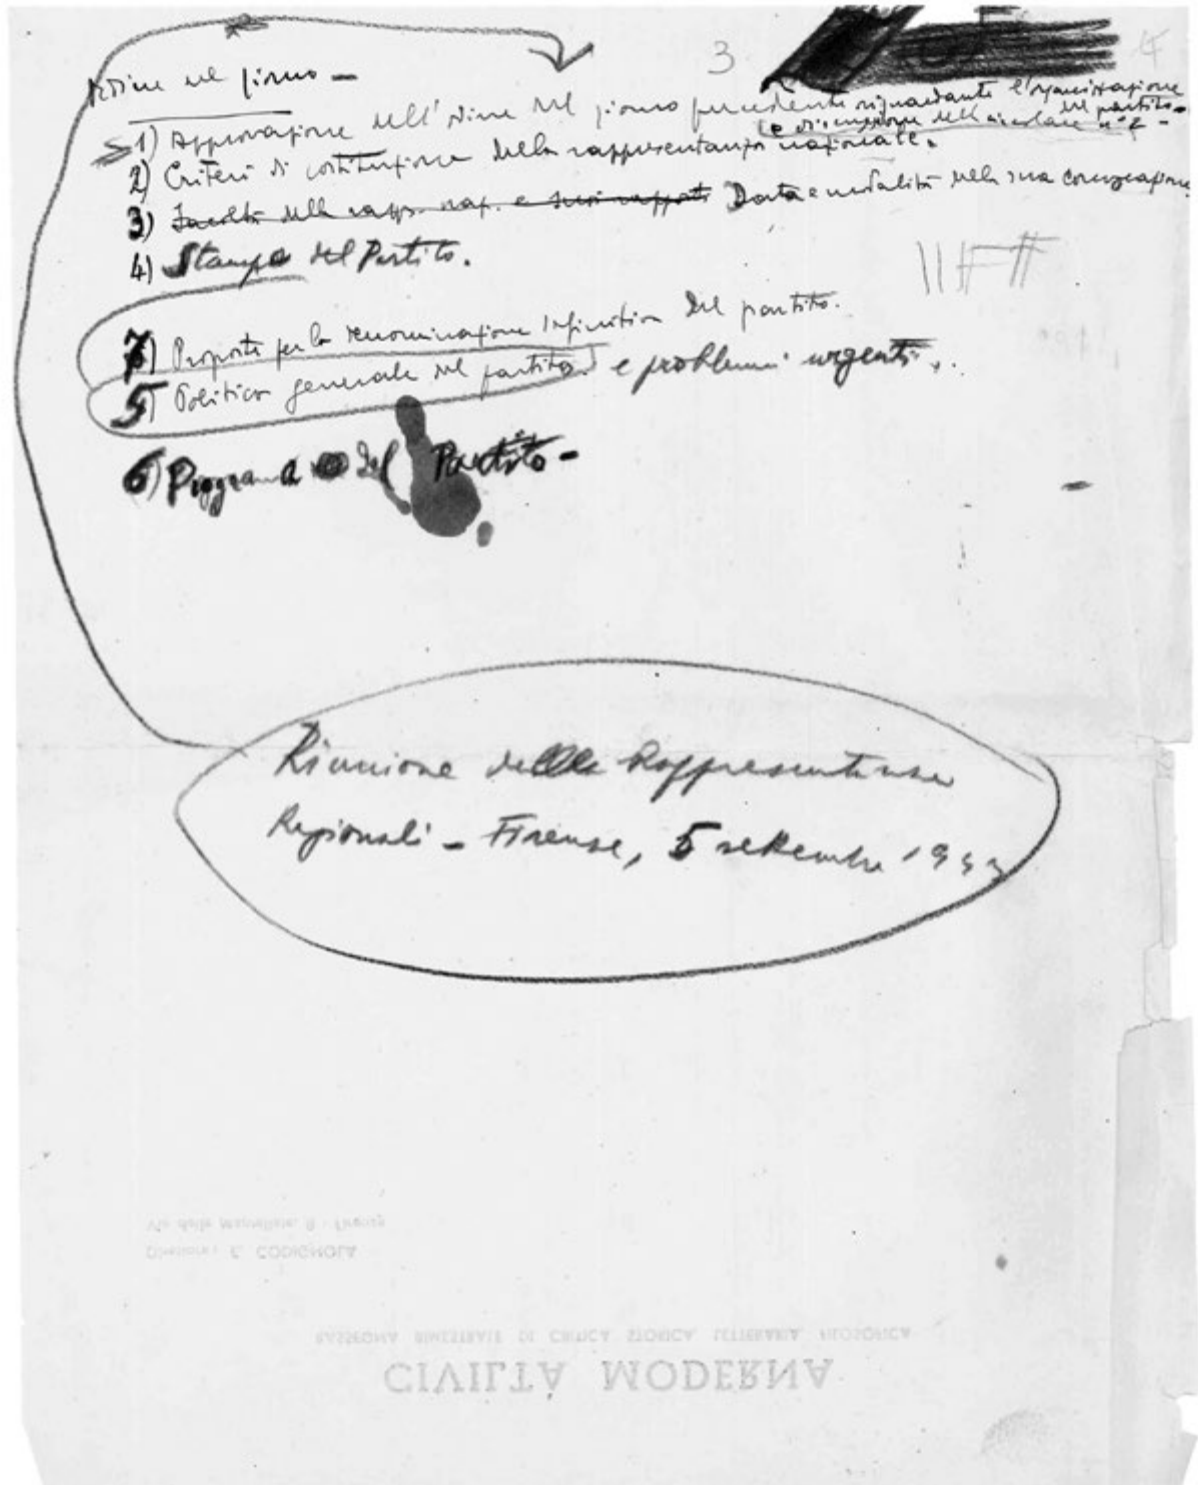 3
4
Ordine del giorno —
1) Approvazione dell'ordine del giorno precedente riguardante l'organizzazione del partito —
e discussione della circolare n° 2 —
2) Criteri di costituzione della rappresentanza nazionale.
3) Facoltà della rapp. naz. e suoi rapporti Data e modalità della sua convocazione
4) Stampa del Partito.
7) Proposte per la denominazione definitiva del partito.
5) Politica generale del partito e problemi urgenti.
6) Programma del Partito —
Riunione delle Rappresentanze
Regionali — Firenze, 5 settembre 1943
Firenze
Direttore: E. CODIGNOLA
RASSEGNA BIMESTRALE DI CRITICA STORICA LETTERARIA FILOSOFICA
CIVILTÀ MODERNA